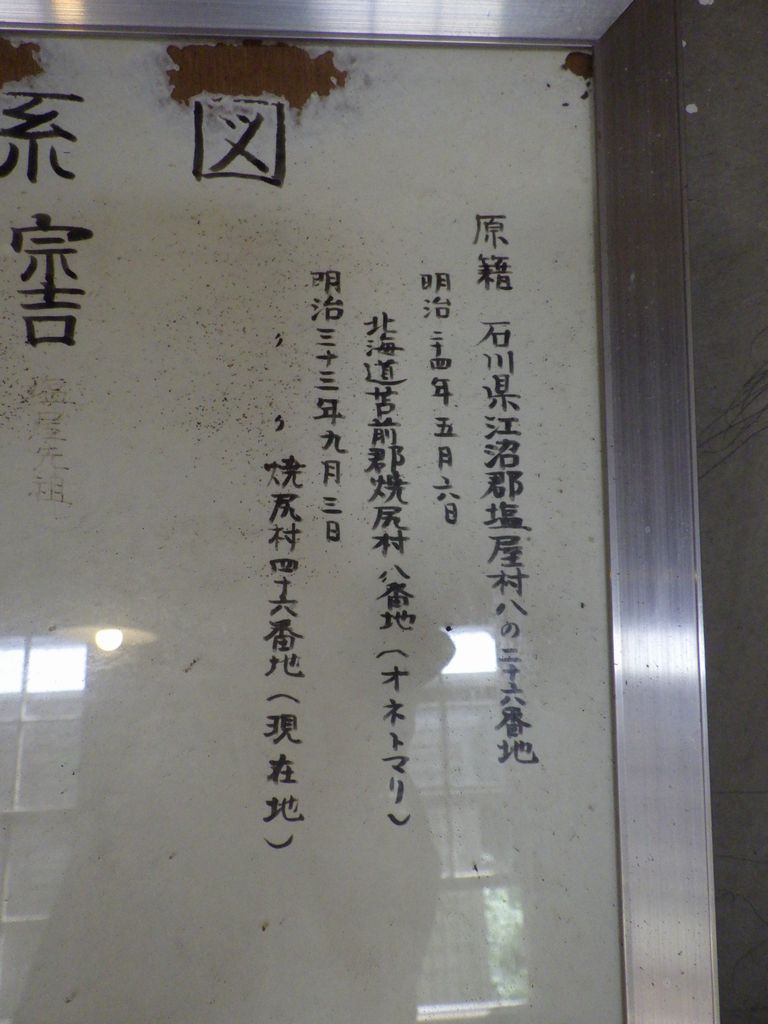 系図
原籍 石川県江沼郡塩屋村八の二十六番地
明治二十四年五月六日
北海道苫前郡焼尻村八番地(オネトマリ)
明治三十三年九月三日
〃 〃 焼尻村四十六番地(現在地)
宗吉
塩屋先祖